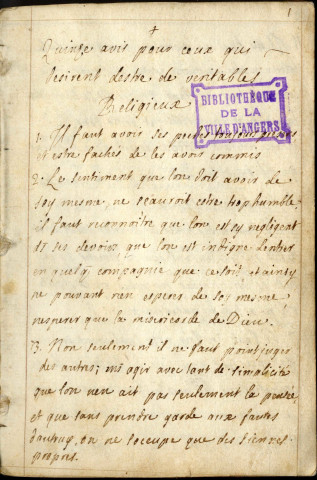 1
Quinze avis pour ceux qui
desirent destre de veritables
Religieux
BIBLIOTHÈQUE
DE LA
VILLE D'ANGERS
1. Il faut avoir ses pechez toujours
et estre fachés de les avoir commis
2. Le sentiment que lon doit avoir de
soy mesme, ne scauroit estre trop humble
il faut reconnoître que lon est sy negligent
à ses devoirs, que lon est indigne dentrer
en quelq compagnie que ce soit, et ainsy
ne pouvant rien esperer de soy mesme,
nesperer que la misericorde de Dieu.
3. Non seulement il ne faut point juger
des autres; mais agir avec tant de simplicité
que lon nen ait pas seulement la pensée,
et que sans prendre garde aux fautes
dautruy, on ne soccupe que des siennes
propres.